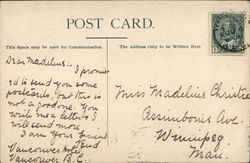 POST CARD.
This Space may be used for Communication
The Address Only to be Written Here
Dear Madeline:
I promis
'd to send you some
postcards, but this is
not a good one. You
write me a letter, I
will send more
I am your friend
Vancouver Hotel
Vancouver B.C.
Miss Madeline Christie
Assiniboine Ave.
Winnipeg
Man.